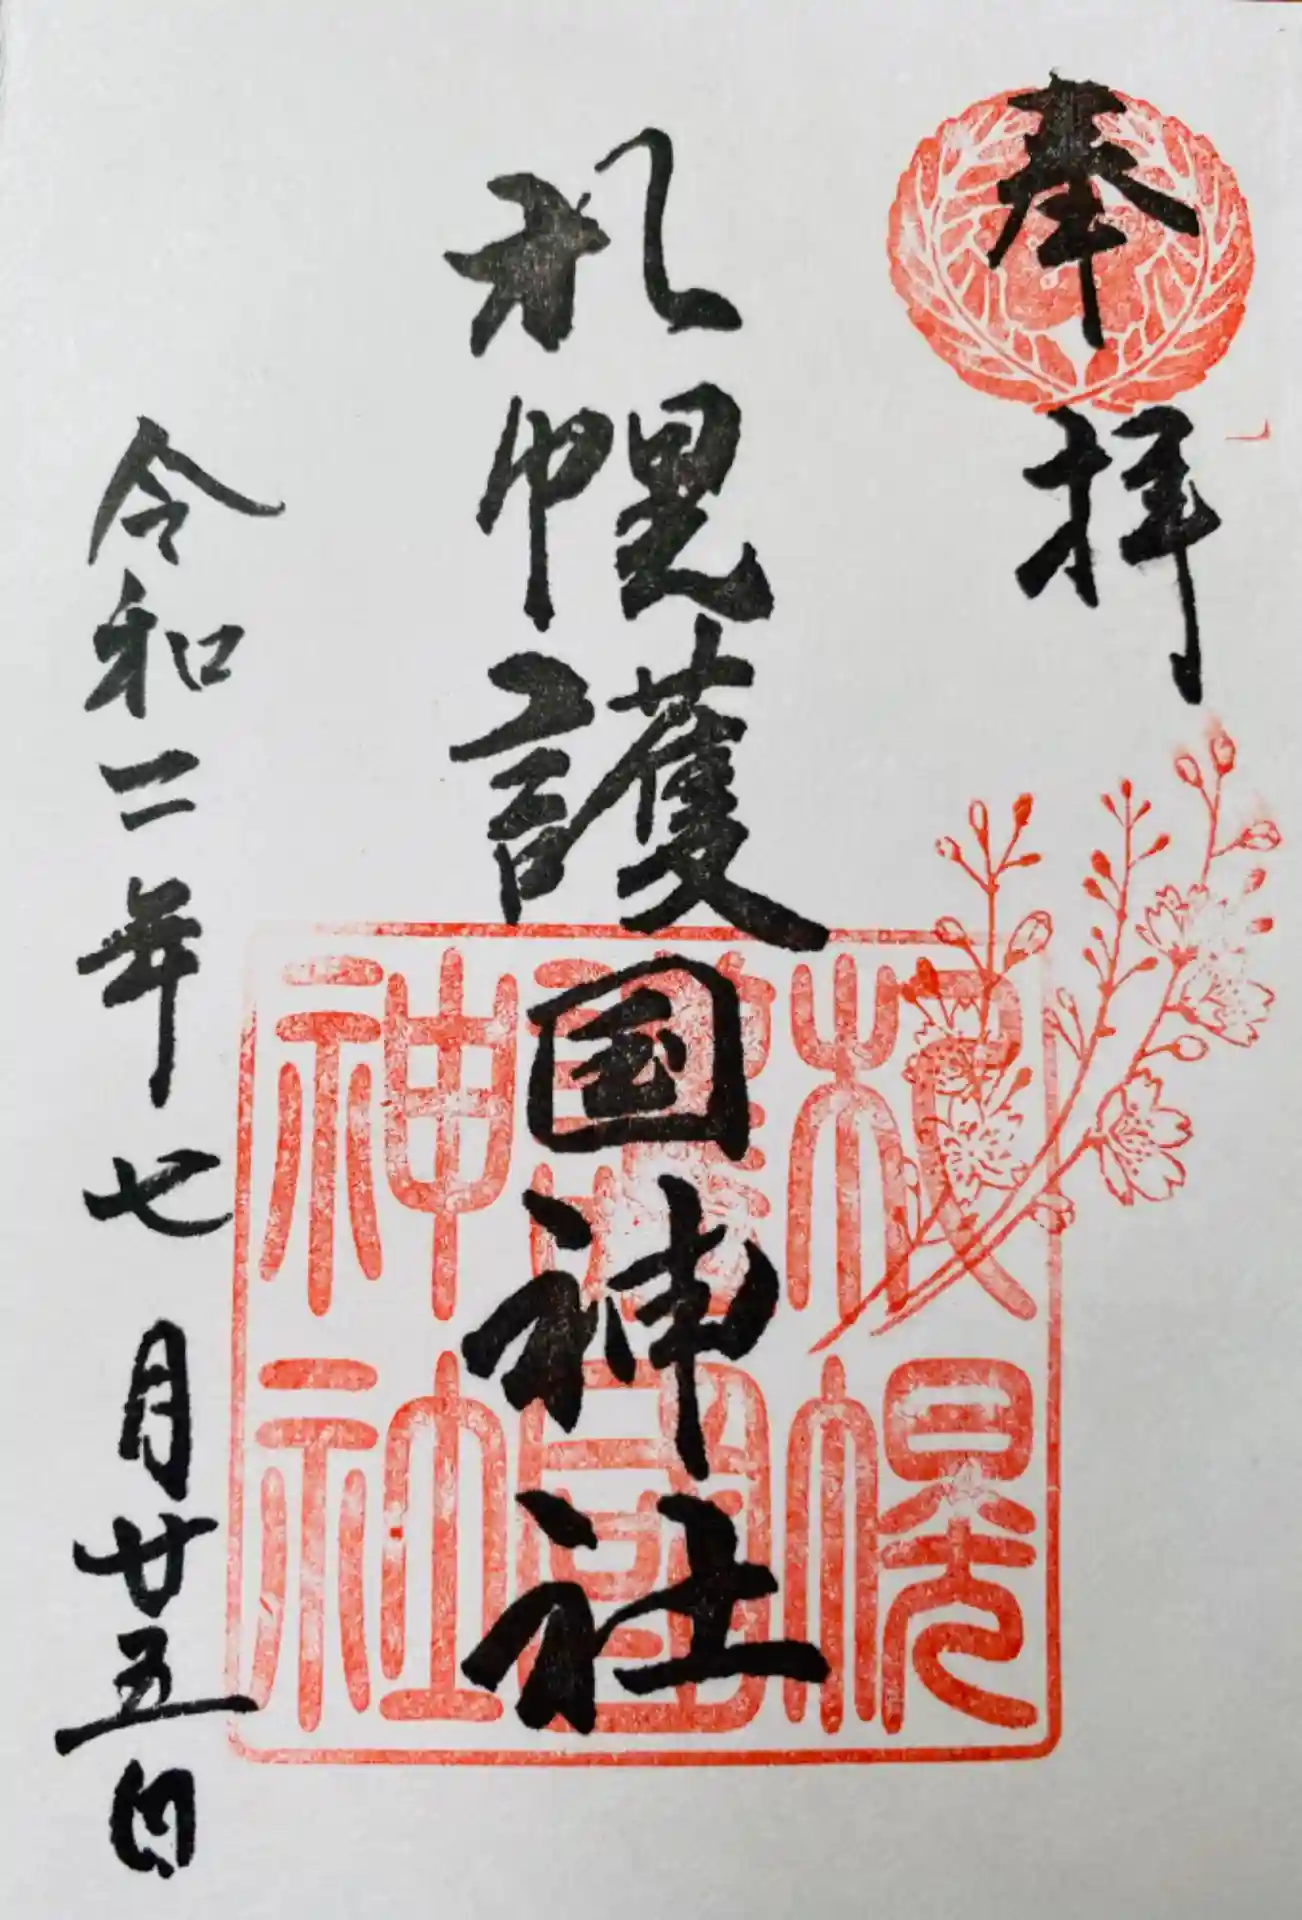 奉拝
札幌護国神社
令和二年七月廿五日
札幌
護國
神社